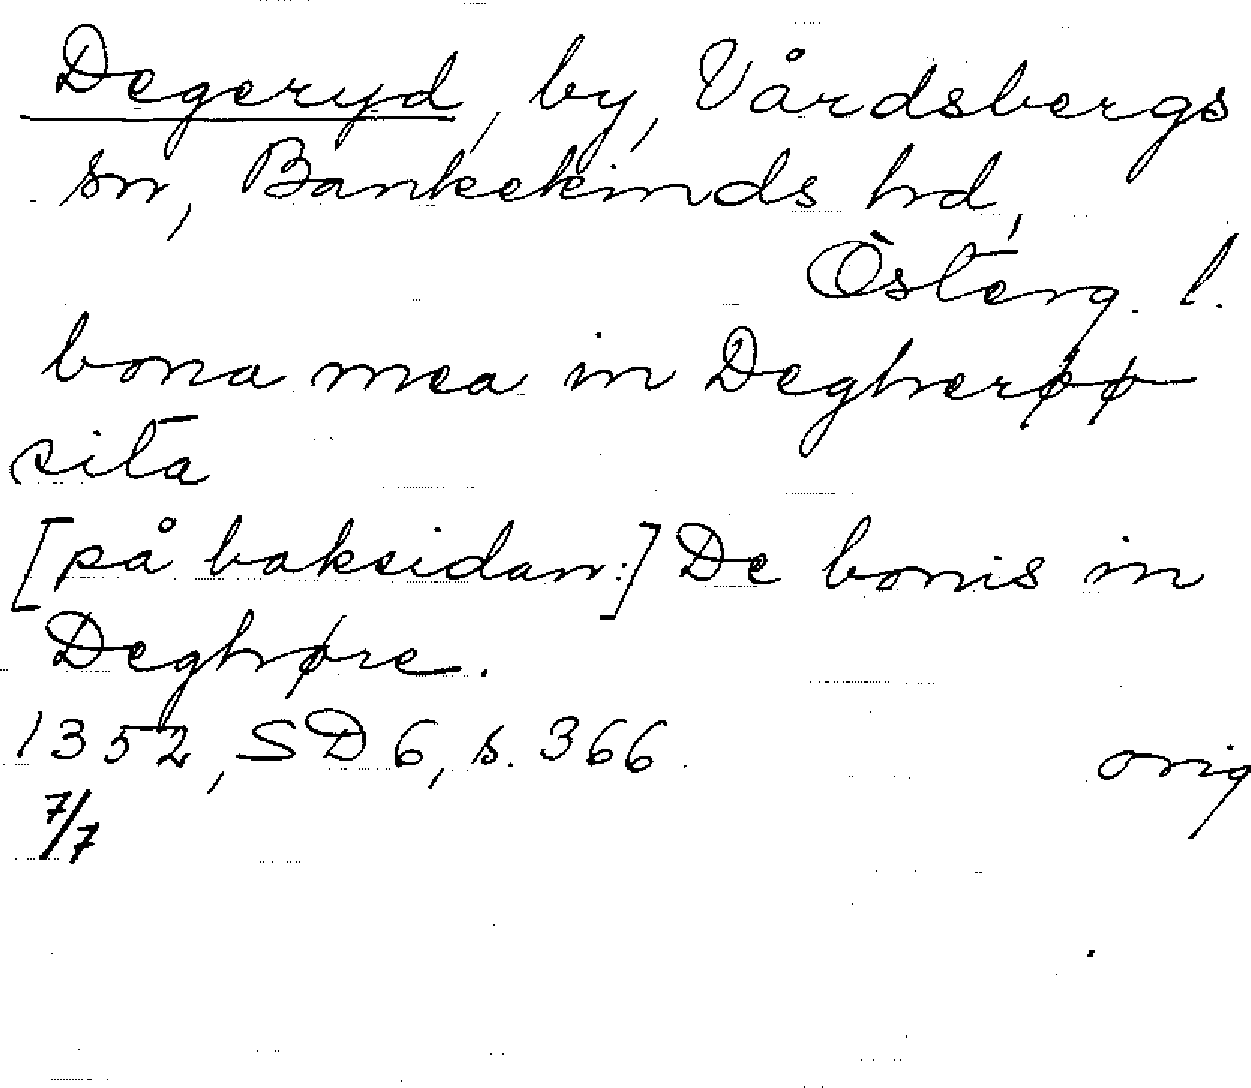 Degeryd, by, Vårdsbergs
sn, Bankekinds hd,
Österg. l.
bona mea in Degherøø
sita
[på baksidan:] De bonis in
Deghøre.
1352, SD 6, s. 366 orig
7/7